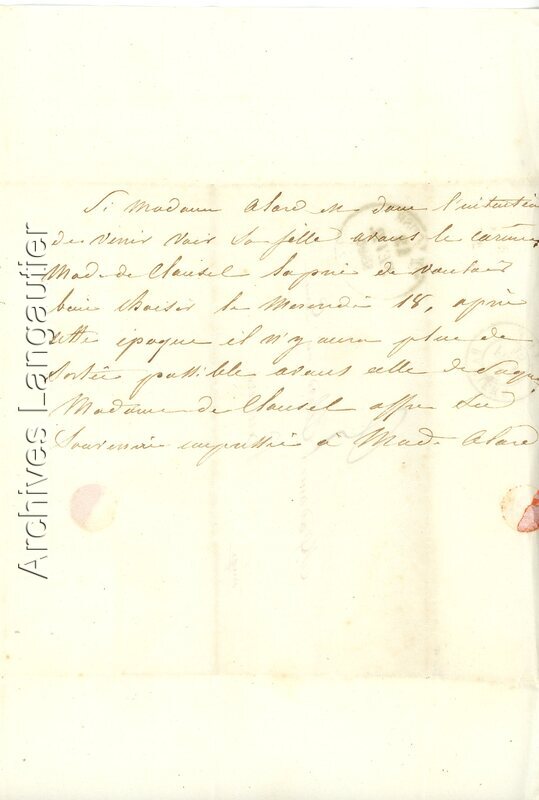 Si Madame Alard est dans l'intention
de venir voir sa fille avant le carême
Mad. de Clausel la prie de vouloir
bien choisir le Mercredi 18, après
cette époque il n'y aura plus de
sortie possible avant celle de Pâques
Madame de Clausel offre ses
Souvenirs empressés à Mad. Alard
Archives Langautier